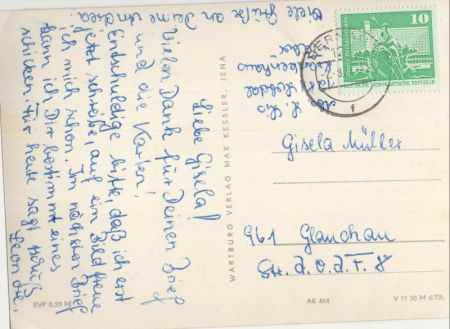 Liebe Gisela!
Vielen Dank für Deinen Brief
und die Karten!
Entschuldige bitte, daß ich erst
jetzt schreibe, auf ein Bild freue
ich mich schon. Im nächsten Brief
kann ich Dir bestimmt eines
schicken. Für heute sagt tschüß
Viele Grüße an Deine
WARTBURG VERLAG MAX KESSLER, JENA
10
DEUTSCHE DEMOKRATISCHE REPUBLIK
Gisela Müller
961 Glauchau
Str. d. O. d. F. 8
EVP 0,20 M
AK 494
V 11 50 M 6/72.